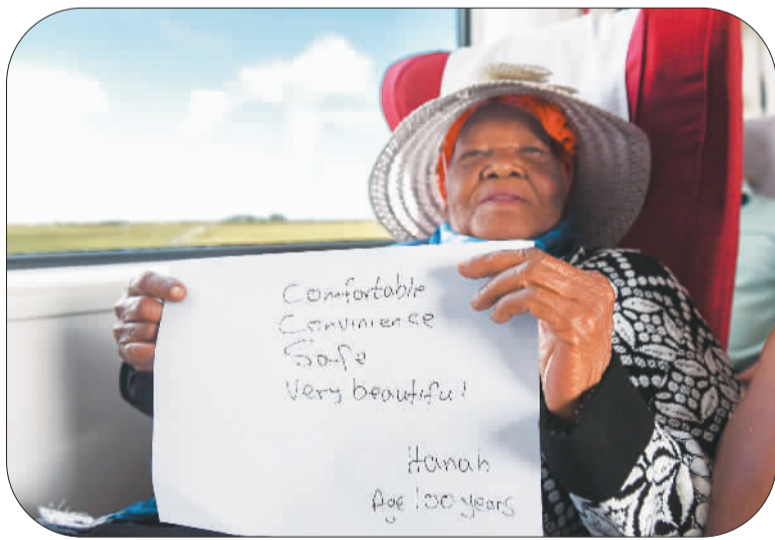 Comfortable
Convinience
Safe
Very beautiful!
Hanah
Age 100 years